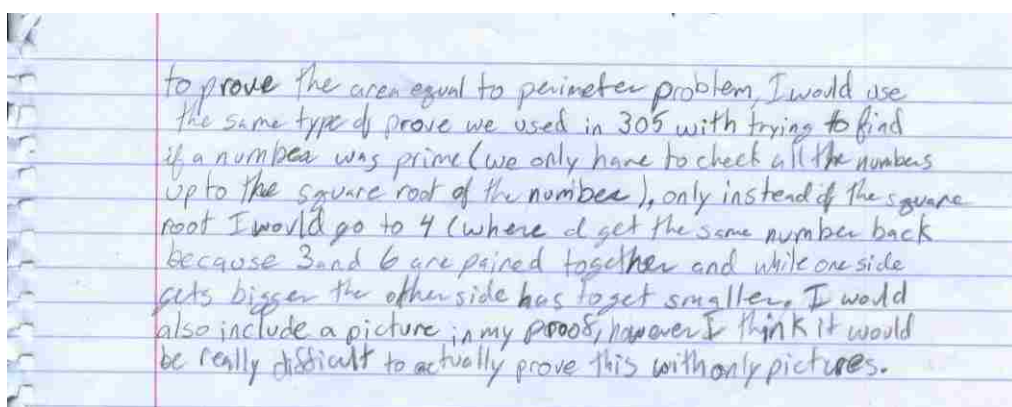 to prove the area equal to perimeter problem, I would use
the same type of prove we used in 305 with trying to find
if a number was prime (we only have to check all the numbers
up to the square root of the number), only instead of the square
root I would go to 4 (where I get the same number back
because 3 and 6 are paired together and while one side
gets bigger the other side has to get smaller. I would
also include a picture in my proof, however I think it would
be really difficult to actually prove this with only pictures.